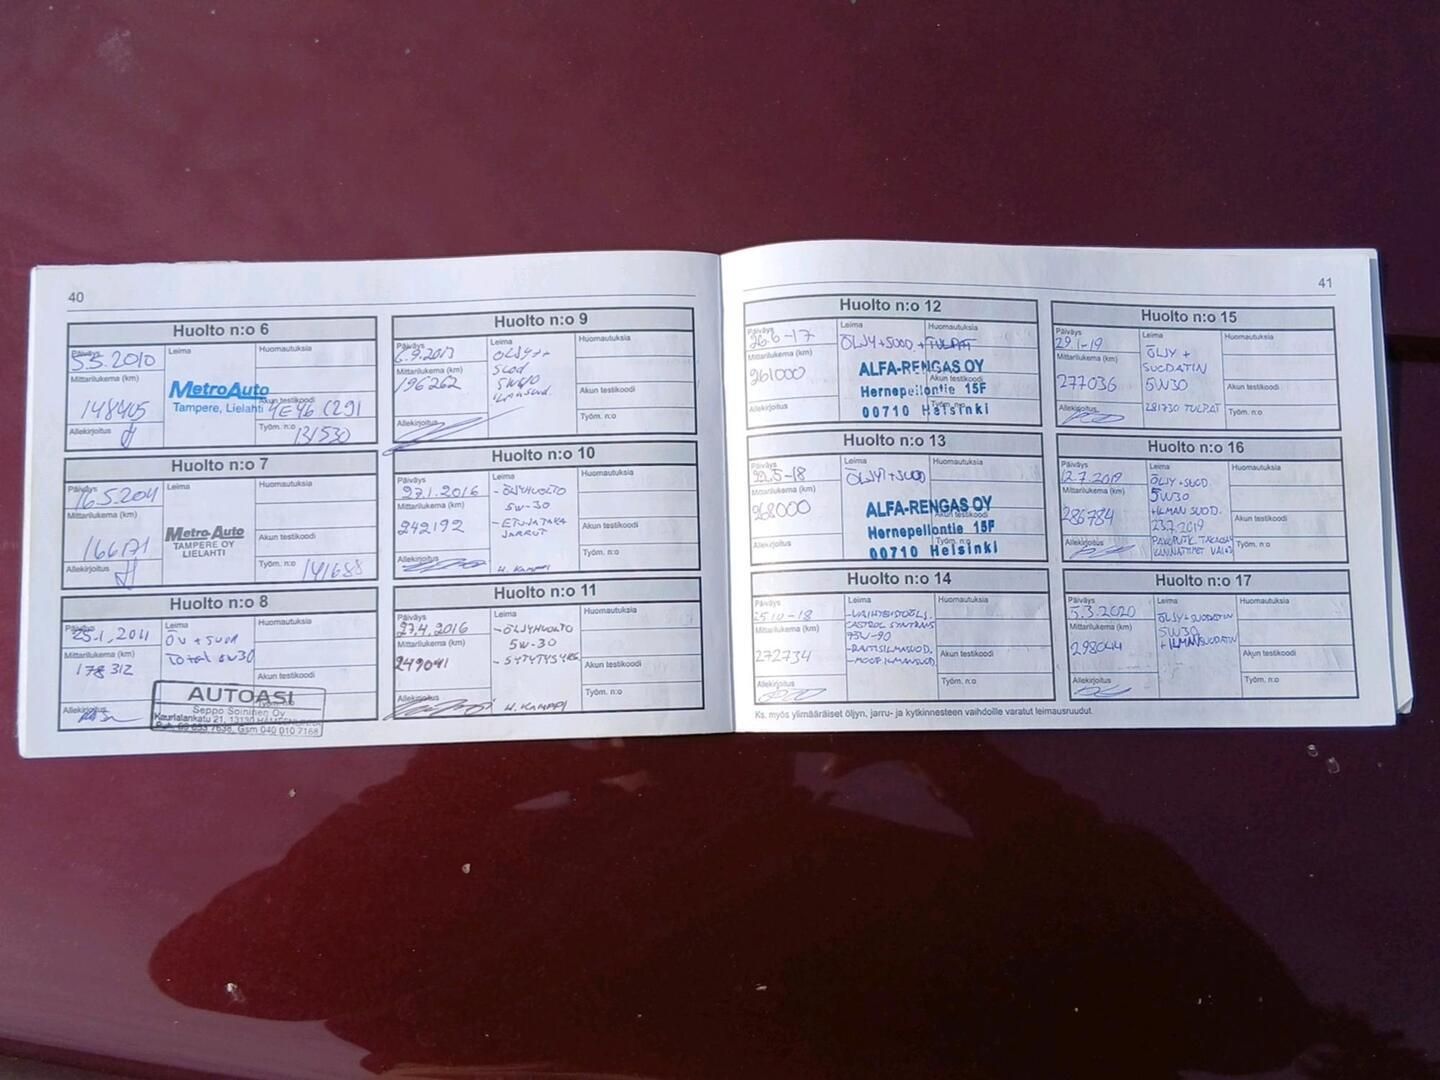 40
Huolto n:o 6
Päiväys
5.5.2010
Leima
Huomautuksia
Mittarilukema (km)
148405
MetroAuto
Tampere, Lielahti
Akun testikoodi
4E46 C291
Allekirjoitus
Työm. n:o
131530
Huolto n:o 7
Päiväys
16.5.2011
Leima
Huomautuksia
Mittarilukema (km)
166171
Metro-Auto
TAMPERE OY
LIELAHTI
Akun testikoodi
Allekirjoitus
Työm. n:o
141688
Huolto n:o 8
Päiväys
25.1.2011
Leima
Huomautuksia
Mittarilukema (km)
178 312
Total 5W30
Akun testikoodi
Allekirjoitus
AUTOASI
Seppo Soininen Oy
Huolto n:o 9
Päiväys
6.9.2013
Leima
ÖLJY+
Huomautuksia
Mittarilukema (km)
196262
Akun testikoodi
Allekirjoitus
Työm. n:o
Huolto n:o 10
Päiväys
27.1.2016
Leima
- ÖLJYHUOLTO
5W-30
Huomautuksia
Mittarilukema (km)
242192
- ETU JA TAKA
JARRUT
Akun testikoodi
Allekirjoitus
H. KAMPPI
Työm. n:o
Huolto n:o 11
Päiväys
27.4.2016
Leima
- ÖLJYHUOLTO
5W-30
Huomautuksia
Mittarilukema (km)
249041
Akun testikoodi
Allekirjoitus
H. KAMPPI
Työm. n:o
41
Huolto n:o 12
Päiväys
26.6-17
Leima
ÖLJY+SUOD + TULPAT
Huomautuksia
Mittarilukema (km)
261000
ALFA-RENGAS OY
Hernepellontie 15F
00710 Helsinki
Akun testikoodi
Allekirjoitus
Työm. n:o
Huolto n:o 13
Päiväys
Leima
ÖLJYT+SUOD
Huomautuksia
Mittarilukema (km)
268000
ALFA-RENGAS OY
Hernepellontie 15F
00710 Helsinki
Akun testikoodi
Allekirjoitus
Työm. n:o
Huolto n:o 14
Päiväys
25.10-18
Leima
-VAIHTEISTOÖLJ.
CASTROL SYNTRANS
75W-90
Huomautuksia
Mittarilukema (km)
272734
-RAITISILMASUOD.
Akun testikoodi
Allekirjoitus
Työm. n:o
Huolto n:o 15
Päiväys
29.1-19
Leima
ÖLJY +
SUODATIN
5W30
Huomautuksia
Mittarilukema (km)
277036
Akun testikoodi
Allekirjoitus
281730 TULPAT
Työm. n:o
Huolto n:o 16
Päiväys
12.7.2019
Leima
ÖLJY+SUOD.
5W30
+ILMAN SUOD.
23.7.2019
Huomautuksia
Mittarilukema (km)
286784
Akun testikoodi
Allekirjoitus
PAKOPUTK. TAKAOSAN
KANNATTIMET VAIHD
Työm. n:o
Huolto n:o 17
Päiväys
5.3.2020
Leima
ÖLJY+SUODATIN
5W30
+ILMANSUODATIN
Huomautuksia
Mittarilukema (km)
298044
Akun testikoodi
Allekirjoitus
Työm. n:o
Ks. myös ylimääräiset öljyn, jarru- ja kytkinnesteen vaihdoille varatut leimausruudut.